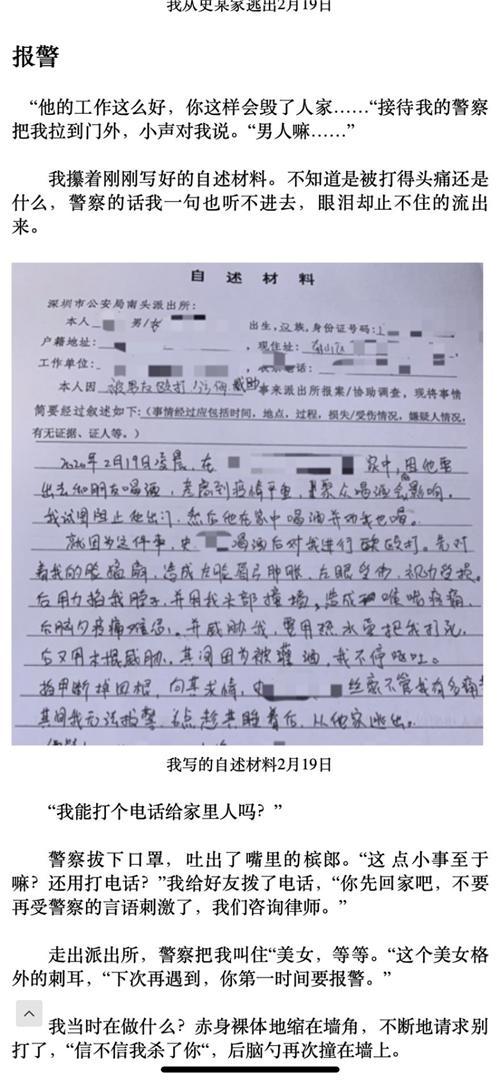 我从史某家逃出2月19日
报警
“他的工作这么好，你这样会毁了人家……“接待我的警察
把我拉到门外，小声对我说。“男人嘛……”
我攥着刚刚写好的自述材料。不知道是被打得头痛还是
什么，警察的话我一句也听不进去，眼泪却止不住的流出
来。
自 述 材 料
深圳市公安局南头派出所：
本人 男/女 出生，汉族，身份证号码：
户籍地址： ，现住址：南山区
工作单位： ，联系电话：
本人因 被男友殴打 威胁 事来派出所报案/协助调查，现将事情
简要经过叙述如下：（事情经过应包括时间，地点，过程，损失/受伤情况，嫌疑人情况，
有无证据、证人等。）
2020年2月19日凌晨，在 家中，因他要
出去和朋友喝酒，考虑到疫情严重，聚众喝酒会影响。
我试图阻止他出门，然后他在家中喝酒并劝我也喝。
就因为这件事，史 喝酒后对我进行 殴打。先对
着我的脸扇，造成左脸眉弓肿胀，左眼受伤，视力受损。
后用力掐我脖子，并用我头部撞墙，造成 喉咙疼痛，
后脑勺疼痛难忍。并威胁我，要用热水壶把我打死，
后又用木棍威胁，其间因为被灌酒，我不停呕吐。
指甲断掉四根，向其求情，史 丝毫不管我有多痛
其间我无法报警，6点趁其睡着后，从他家逃出。
我写的自述材料2月19日
“我能打个电话给家里人吗？”
警察拔下口罩，吐出了嘴里的槟郎。“这 点小事至于
嘛？还用打电话？”我给好友拨了电话，“你先回家吧，不要
再受警察的言语刺激了，我们咨询律师。”
走出派出所，警察把我叫住“美女，等等。“这个美女格
外的刺耳，“下次再遇到，你第一时间要报警。”
我当时在做什么？赤身裸体地缩在墙角，不断地请求别
打了，“信不信我杀了你“，后脑勺再次撞在墙上。